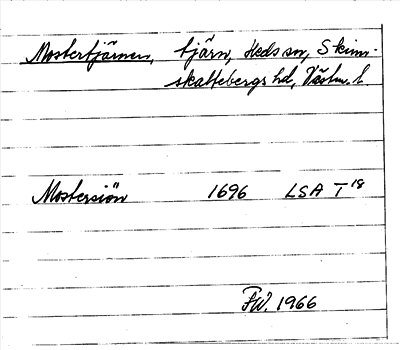 Mostertjärnen, tjärn, Heds sn, Skinn-
skattebergs hd, Västm. l.
Mostersiön 1696 LSA T 18
FW. 1966